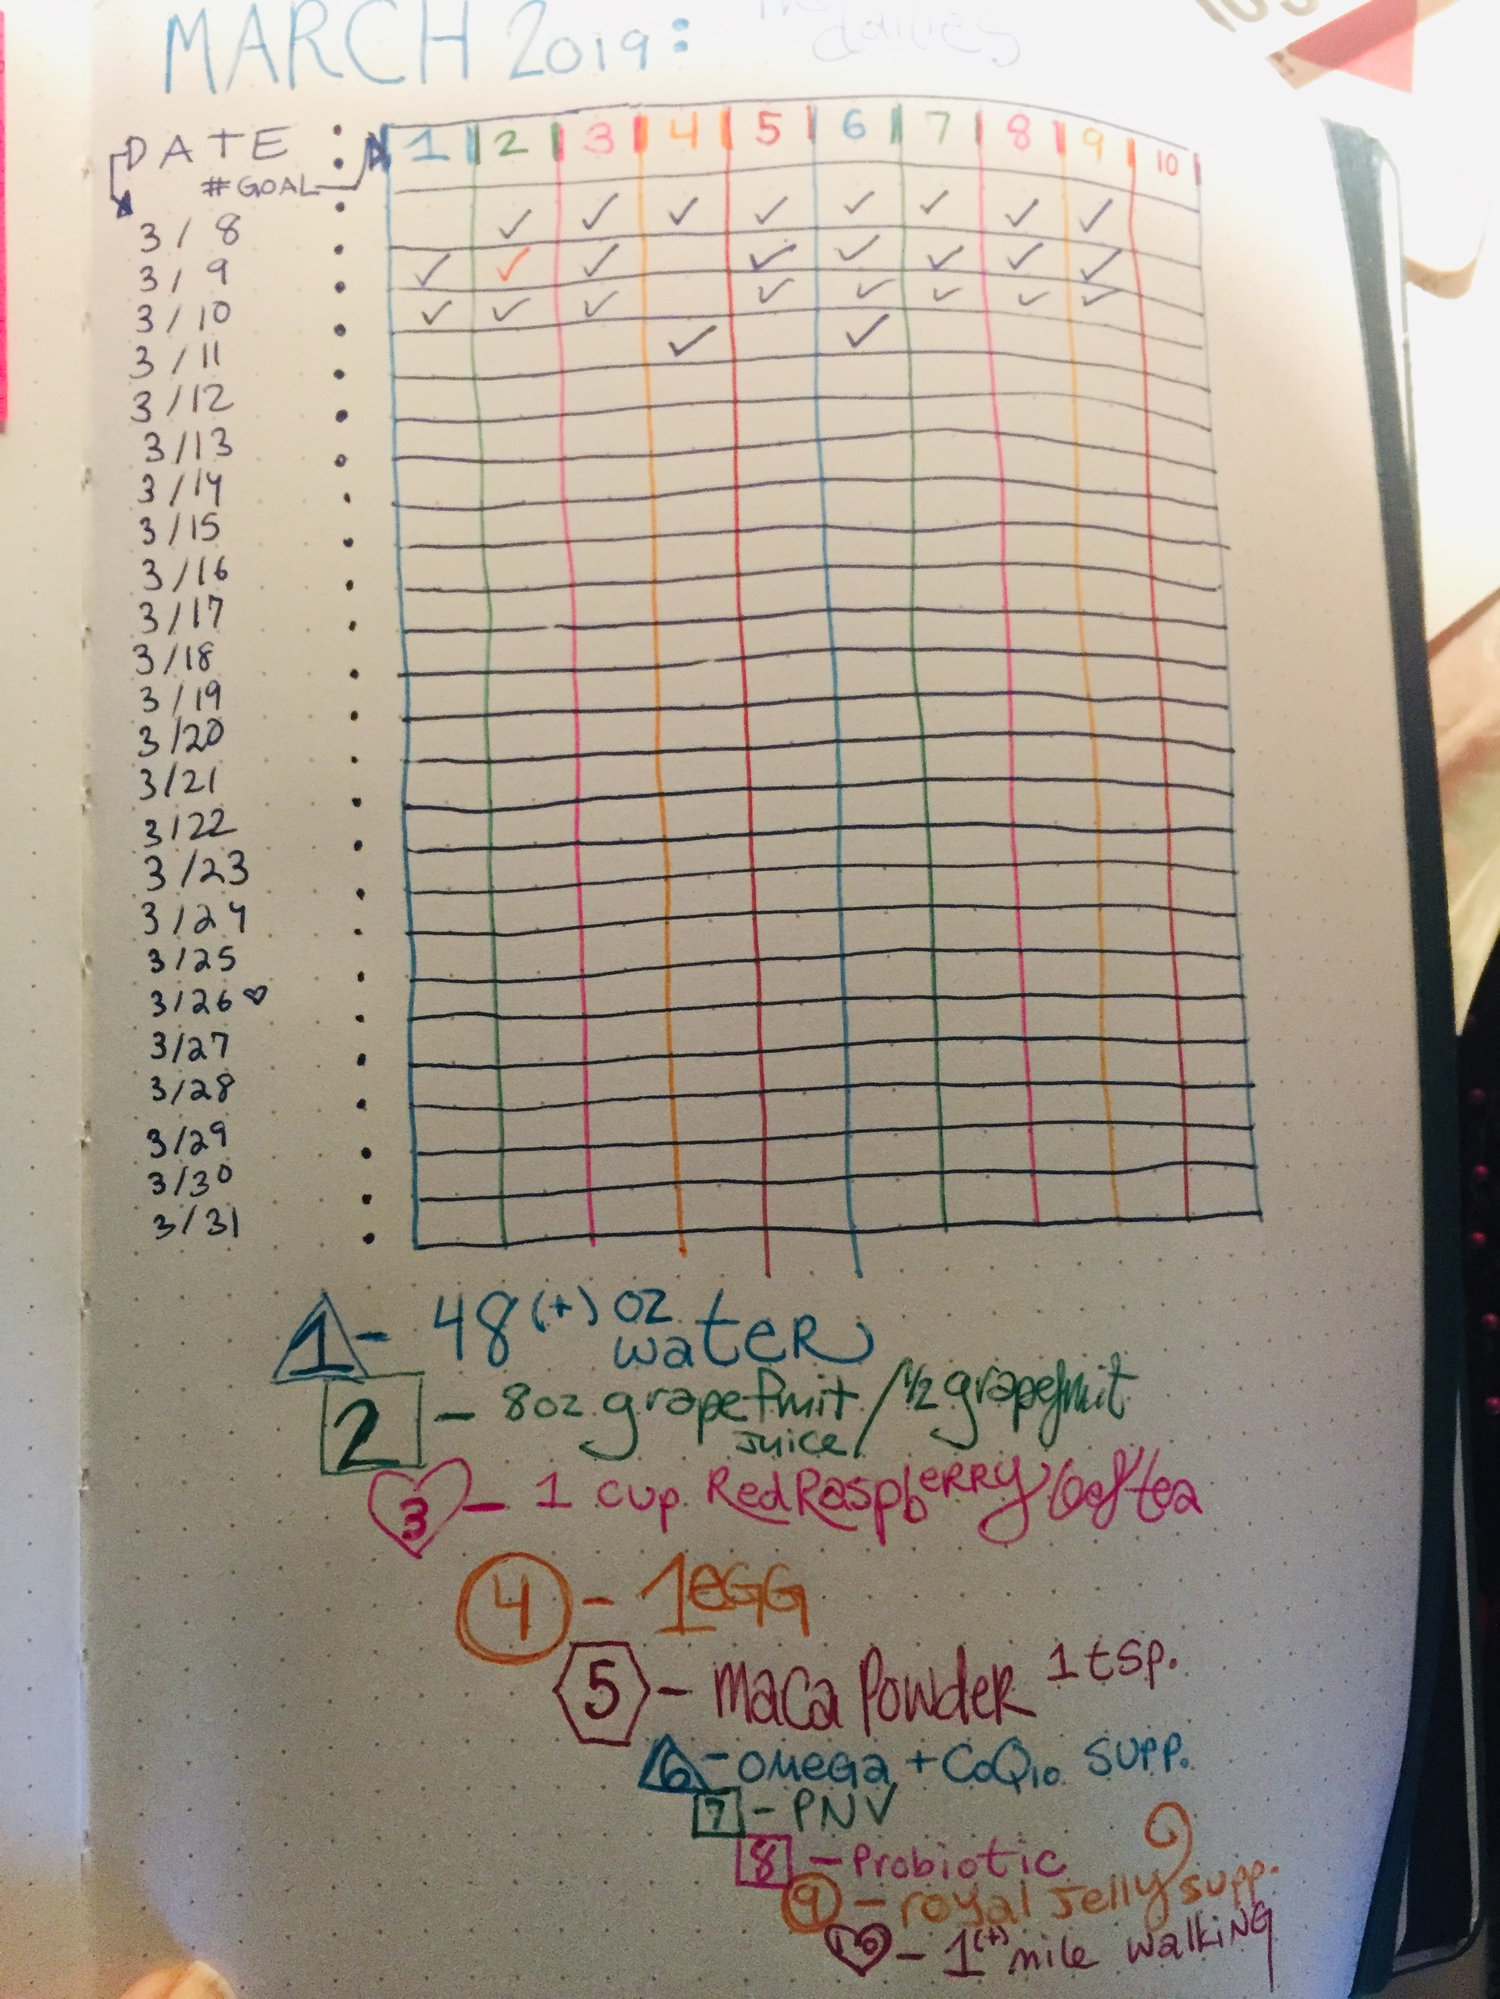 MARCH 2019: the dailies
DATE 1 2 3 4 5 6 7 8 9 10
#GOAL
3/8 ✓ ✓ ✓ ✓ ✓ ✓ ✓ ✓
3/9 ✓ ✓ ✓ ✓ ✓ ✓ ✓ ✓
3/10 ✓ ✓ ✓ ✓ ✓ ✓ ✓ ✓
3/11 ✓ ✓
3/12
3/13
3/14
3/15
3/16
3/17
3/18
3/19
3/20
3/21
3/22
3/23
3/24
3/25
3/26♡
3/27
3/28
3/29
3/30
3/31
1 - 48(+) oz water
2 - 8oz grapefruit juice / 1/2 grapefruit
3 - 1 cup Red Raspberry leaf tea
4 - 1 EGG
5 - maca powder 1 tsp.
6 - omega + CoQ10 supp.
7 - PNV
8 - Probiotic
9 - royal jelly supp.
10 - 1(+) mile walking